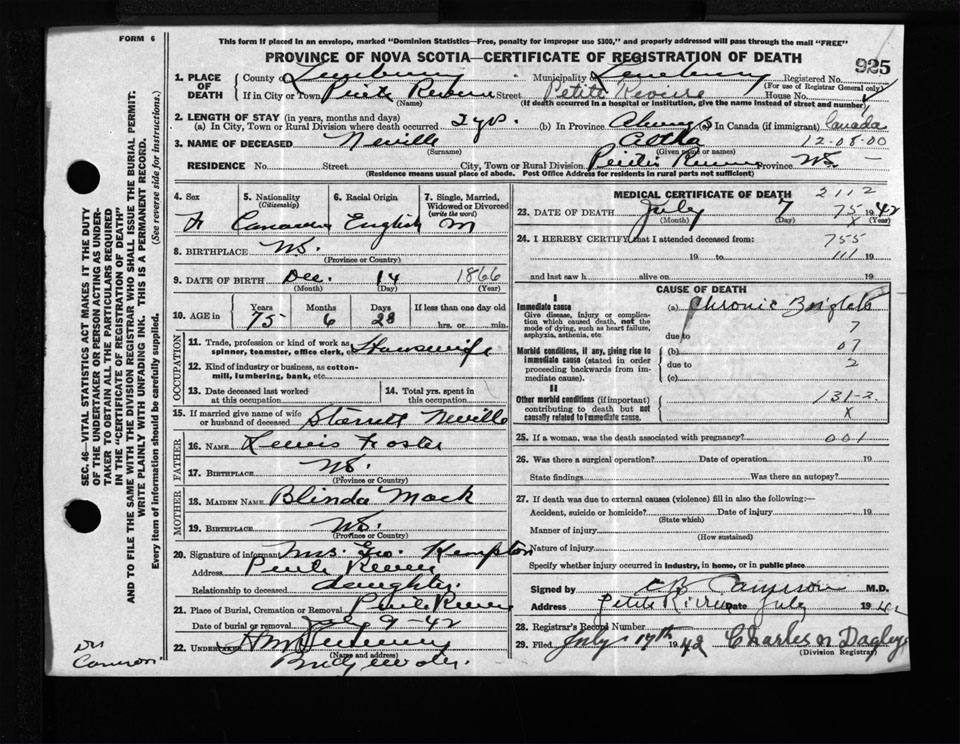 FORM 6
This form if placed in an envelope, marked "Dominion Statistics—Free, penalty for improper use $300," and properly addressed will pass through the mail "FREE"
PROVINCE OF NOVA SCOTIA—CERTIFICATE OF REGISTRATION OF DEATH
925
1. PLACE OF DEATH
County of Lunenburg Municipality of Lunenburg Registered No.
(For use of Registrar General only)
If in City or Town Petite Riviere Street Petite Riviere House No.
(Name) (If death occurred in a hospital or institution, give the name instead of street and number)
2. LENGTH OF STAY (in years, months and days)
(a) In City, Town or Rural Division where death occurred 2 yrs. (b) In Province Always (c) In Canada (if immigrant) Canada
3. NAME OF DECEASED Neville
(Surname) (Given name or names)
12-08-00
RESIDENCE No. Street City, Town or Rural Division Petite Riviere Province N.S.
(Residence means usual place of abode. Post Office Address for residents in rural parts not sufficient)
4. Sex F
5. Nationality (Citizenship) Canadian
6. Racial Origin English
7. Single, Married, Widowed or Divorced (write the word) M
8. BIRTHPLACE N.S.
(Province or Country)
9. DATE OF BIRTH Dec. 14 1866
(Month) (Day) (Year)
10. AGE in Years 75 Months 6 Days 23 If less than one day old hrs. or min.
OCCUPATION
11. Trade, profession or kind of work as spinner, teamster, office clerk, etc. Housewife
12. Kind of industry or business, as cotton-mill, lumbering, bank, etc.
13. Date deceased last worked at this occupation
14. Total yrs. spent in this occupation
15. If married give name of wife or husband of deceased Starratt Neville
FATHER
16. NAME Lewis Foster
17. BIRTHPLACE N.S.
(Province or Country)
MOTHER
18. MAIDEN NAME Blinda Mack
19. BIRTHPLACE N.S.
(Province or Country)
20. Signature of informant Mrs. Geo. Hempton
Address Petite Riviere
Relationship to deceased daughter.
21. Place of Burial, Cremation or Removal Petite Riviere
Date of burial or removal July 9-42
22. Undertaker
(Name and address)
Bridgewater.
Dr Cameron
MEDICAL CERTIFICATE OF DEATH 2112
23. DATE OF DEATH July 7 75 1942
(Month) (Day)
24. I HEREBY CERTIFY that I attended deceased from:
755
19 to 111 19
and last saw h alive on 19
CAUSE OF DEATH
I
Immediate cause
Give disease, injury or complication which caused death, not the mode of dying, such as heart failure, asphyxia, asthenia, etc
(a) Chronic
due to 7
Morbid conditions, if any, giving rise to immediate cause (stated in order proceeding backwards from immediate cause).
(b) 07
due to 2
(c)
II
Other morbid conditions (if important) contributing to death but not causally related to immediate cause.
131-2
X
25. If a woman, was the death associated with pregnancy? 001
26. Was there a surgical operation? Date of operation 19
State findings Was there an autopsy?
27. If death was due to external causes (violence) fill in also the following:—
Accident, suicide or homicide? Date of injury 19
(State which)
Manner of injury
(How sustained)
Nature of injury
Specify whether injury occurred in industry, in home, or in public place
Signed by Cameron M.D.
Address Petite Riviere Date July 1942
28. Registrar's Record Number
29. Filed July 17th 1942 Charles N Dagley
(Division Registrar)
SEC. 46—VITAL STATISTICS ACT MAKES IT THE DUTY
OF THE UNDERTAKER OR PERSON ACTING AS UNDER-
TAKER TO OBTAIN ALL THE PARTICULARS REQUIRED
IN THE "CERTIFICATE OF REGISTRATION OF DEATH"
AND TO FILE THE SAME WITH THE DIVISION REGISTRAR WHO SHALL ISSUE THE BURIAL PERMIT.
WRITE PLAINLY WITH UNFADING INK. THIS IS A PERMANENT RECORD.
Every item of Information should be carefully supplied. (See reverse side for Instructions.)